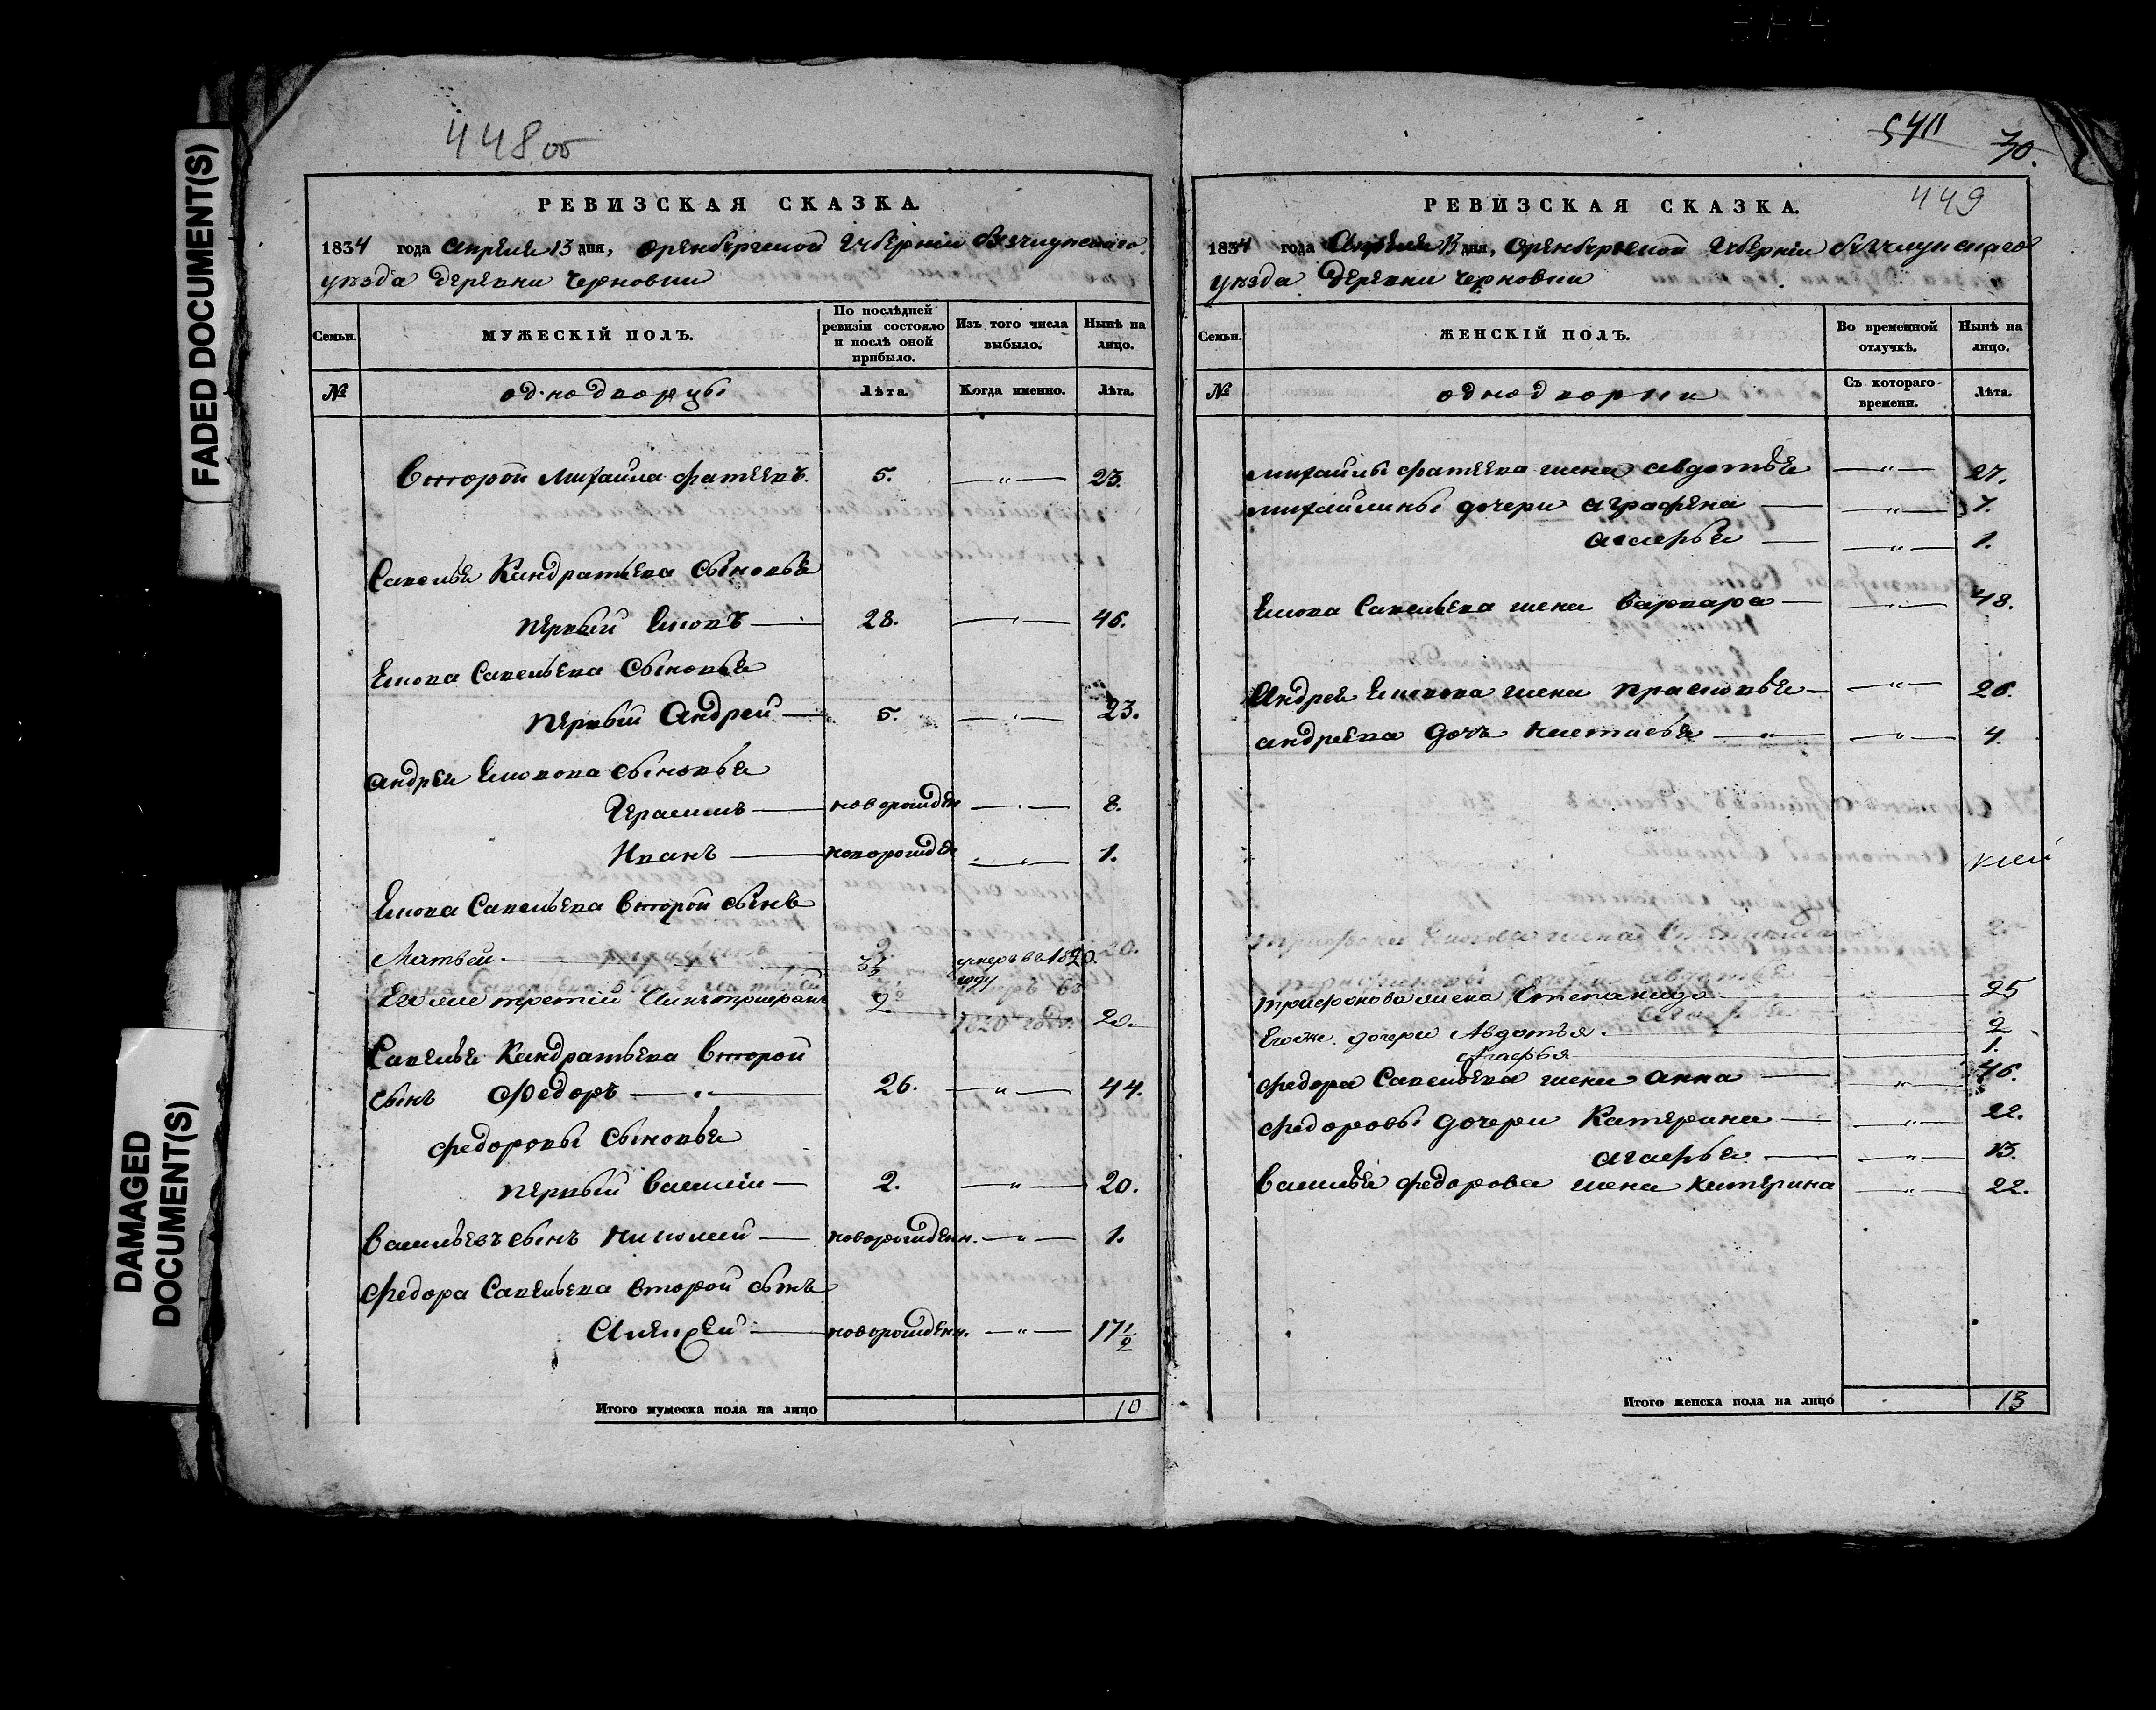 FADED DOCUMENT(S)
DAMAGED
DOCUMENT(S)
448 об
РЕВИЗСКАЯ СКАЗКА.
1834 года Апреля 13 дня, Оренбургской Губернiи Бузулуцкаго
уѣзда деревни Черновки
Семьи.
МУЖЕСКІЙ ПОЛЪ.
По послѣдней ревизіи состояло и послѣ оной прибыло.
Изъ того числа выбыло.
Нынѣ на лицо.
№
однодворцы
Лѣта.
Когда именно.
Лѣта.
Второй Михайла Фатеевъ. 5. — " — 23.
Савелья Кандратьева Сыновья
первый Емова
28. — " — 46.
Савельева Сыновья
первый Андрей — 5. — " — 23.
Андрея сыновья
Герасимъ — новорожден — " — 8.
Иванъ — новорожден — " — 1.
Савельева второй сынъ
Матвей. 3½ умеръ въ 1820. году
Его же третий Сынъ Трифонъ 2. 20.
Савелья Кандратьева второй
сынъ Федоръ — " — 26. — " — 44.
Федоровы Сыновья
первый Василiи — 2. — " — 20.
Васильевъ сынъ Николай — новорожденн. — " — 1.
Федора Савельева второй сынъ
Алексей — новорожденн. — " — 17½
Итого мужеска пола на лицо 10
5411
70.
449
РЕВИЗСКАЯ СКАЗКА.
1834 года Апреля 13 дня, Оренбургской Губернiи Бузулуцкаго
уѣзда деревни Черновки
Семьи.
ЖЕНСКІЙ ПОЛЪ.
Во временной отлучкѣ.
Нынѣ на лицо.
№
однодворки
Съ котораго времени.
Лѣта.
Михайлы Фатеева жена Авдотья — " — 27.
Михайлины дочери Аграфена — — " — 7.
Агафья — — " — 1.
Савельева жена Варвара — — " — 48.
Андрея жена Прасковья — — " — 26.
Андреева дочь Настасья — " — — " — 4.
Трифонова жена Степанида 25
Егоже дочери Авдотья. 2
Агафья 1.
Федора Савельева жена Анна — — " — 46.
Федоровы дочери Катерина — — " — 22.
Агафья. — — " — 13.
Василья Федорова жена Катерина — " — 22.
Итого женска пола на лицо 13